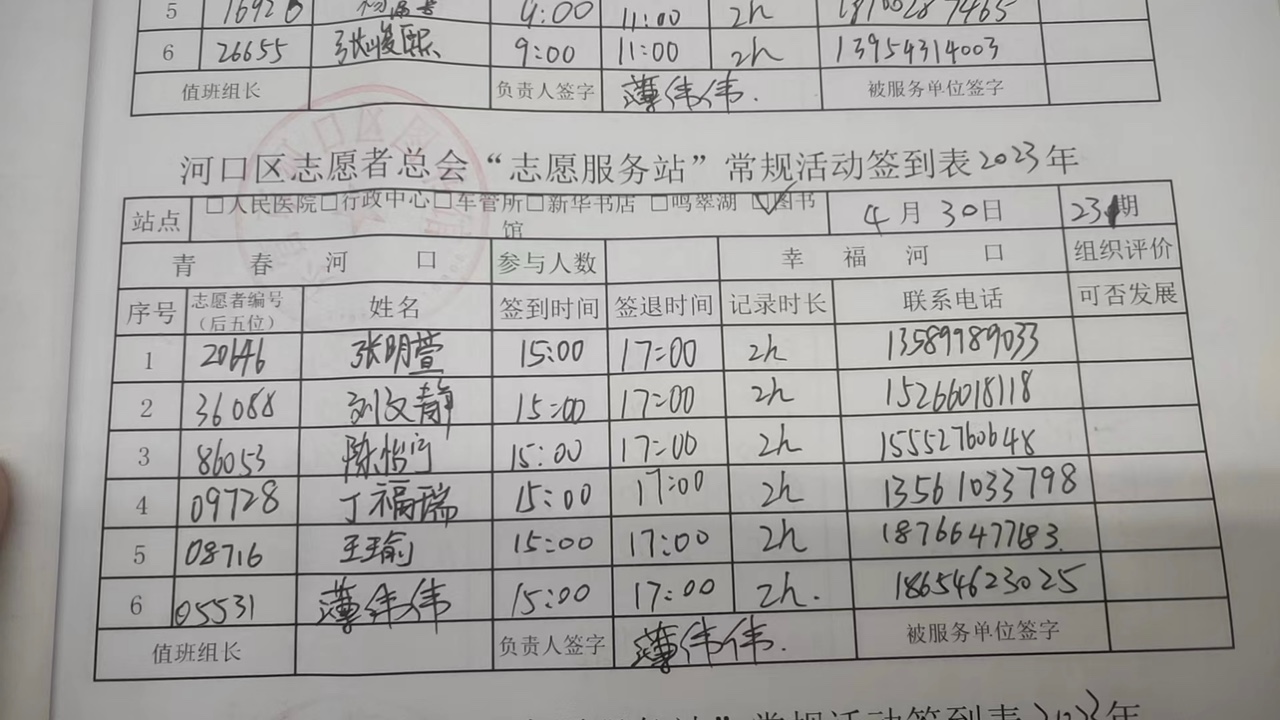 5 16926 9:00 11:00 2h
6 26655 张峻熙 9:00 11:00 2h 13954314003
值班组长 负责人签字 薄伟伟. 被服务单位签字
河口区志愿者总会“志愿服务站”常规活动签到表2023年
站点 □人民医院□行政中心□车管所□新华书店 □鸣翠湖 ☑图书馆 4月30日 231期
青春河口 参与人数 幸福河口 组织评价
序号 志愿者编号（后五位） 姓名 签到时间 签退时间 记录时长 联系电话 可否发展
1 20646 张明萱 15:00 17:00 2h 13589989033
2 36088 刘文静 15:00 17:00 2h 15266018118
3 86053 陈怡宁 15:00 17:00 2h 15552760648
4 09728 丁福瑞 15:00 17:00 2h 13561033798
5 08716 王瑜 15:00 17:00 2h 18766477183.
6 05531 薄伟伟 15:00 17:00 2h. 18654623025
值班组长 负责人签字 薄伟伟. 被服务单位签字
”常规活动签到表2023年